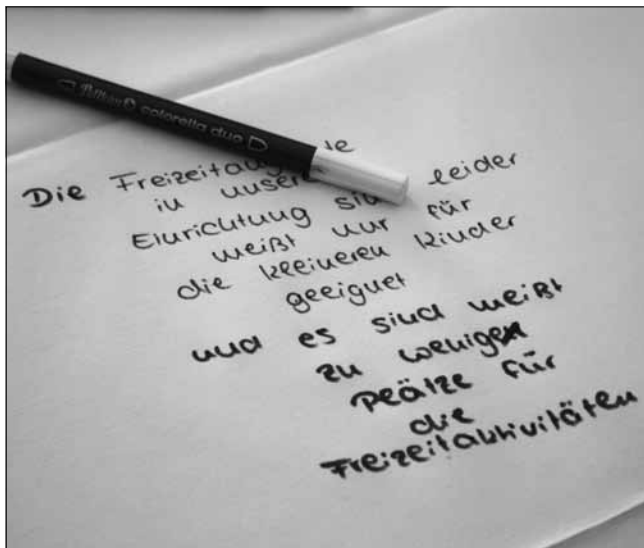 Pelikan colorella duo
Die
in
Einrichtung leider
meißt nur für
die kleineren Kinder
geeignet
und es sind meißt
zu wenige
Plätze für
die
Freizeitaktivitäten